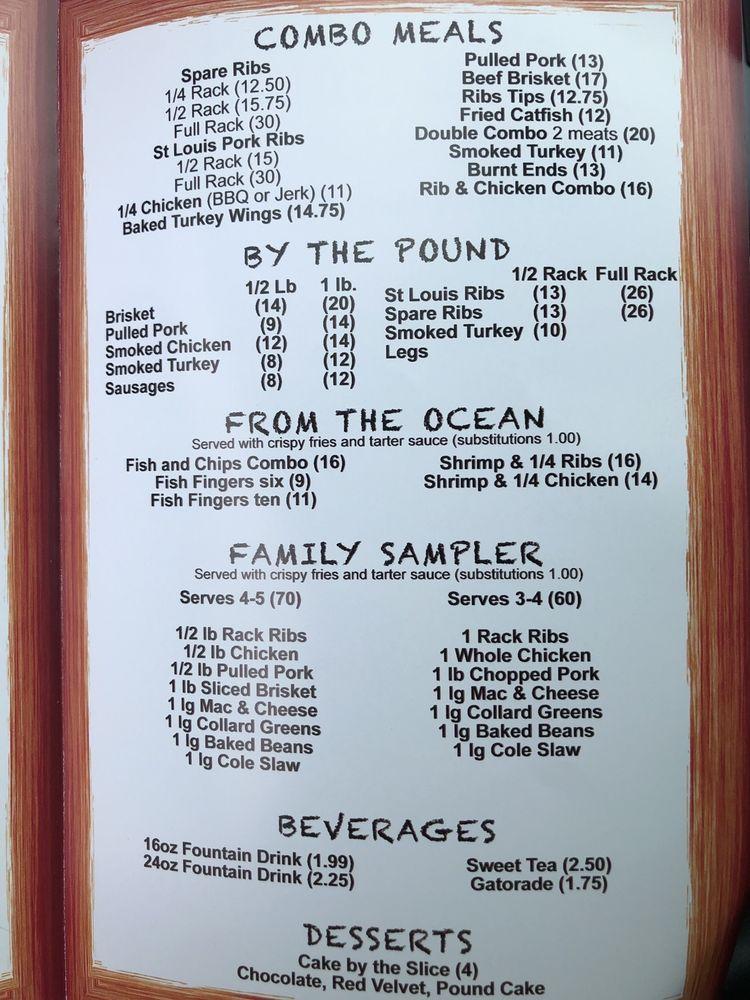 COMBO MEALS
Spare Ribs
1/4 Rack (12.50)
1/2 Rack (15.75)
Full Rack (30)
St Louis Pork Ribs
1/2 Rack (15)
Full Rack (30)
1/4 Chicken (BBQ or Jerk) (11)
Baked Turkey Wings (14.75)
Pulled Pork (13)
Beef Brisket (17)
Ribs Tips (12.75)
Fried Catfish (12)
Double Combo 2 meats (20)
Smoked Turkey (11)
Burnt Ends (13)
Rib & Chicken Combo (16)
BY THE POUND
1/2 Lb 1 lb.
Brisket (14) (20)
Pulled Pork (9) (14)
Smoked Chicken (12) (14)
Smoked Turkey (8) (12)
Sausages (8) (12)
1/2 Rack Full Rack
St Louis Ribs (13) (26)
Spare Ribs (13) (26)
Smoked Turkey (10)
Legs
FROM THE OCEAN
Served with crispy fries and tarter sauce (substitutions 1.00)
Fish and Chips Combo (16)
Fish Fingers six (9)
Fish Fingers ten (11)
Shrimp & 1/4 Ribs (16)
Shrimp & 1/4 Chicken (14)
FAMILY SAMPLER
Served with crispy fries and tarter sauce (substitutions 1.00)
Serves 4-5 (70)
1/2 lb Rack Ribs
1/2 lb Chicken
1/2 lb Pulled Pork
1 lb Sliced Brisket
1 lg Mac & Cheese
1 lg Collard Greens
1 lg Baked Beans
1 lg Cole Slaw
Serves 3-4 (60)
1 Rack Ribs
1 Whole Chicken
1 lb Chopped Pork
1 lg Mac & Cheese
1 lg Collard Greens
1 lg Baked Beans
1 lg Cole Slaw
BEVERAGES
16oz Fountain Drink (1.99)
24oz Fountain Drink (2.25)
Sweet Tea (2.50)
Gatorade (1.75)
DESSERTS
Cake by the Slice (4)
Chocolate, Red Velvet, Pound Cake